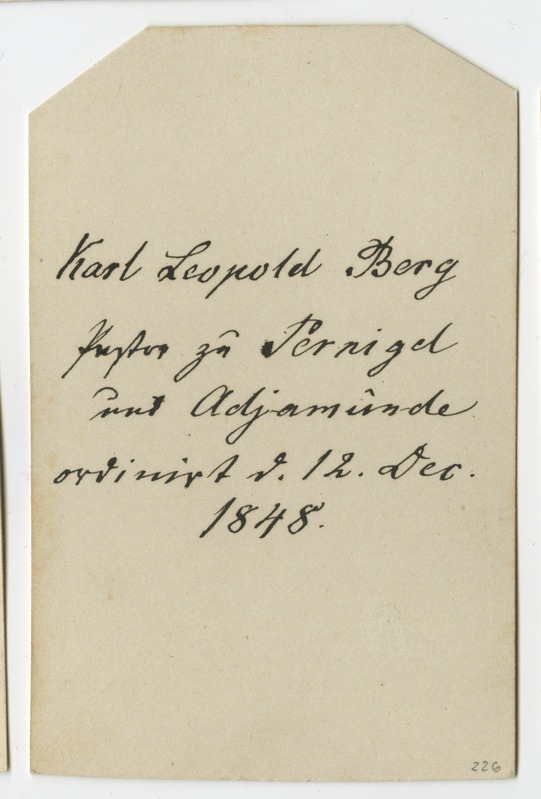 Karl Leopold Berg
Pastor zu Pernigel
und Adjamünde
ordinirt d. 12. Dec.
1848.
226